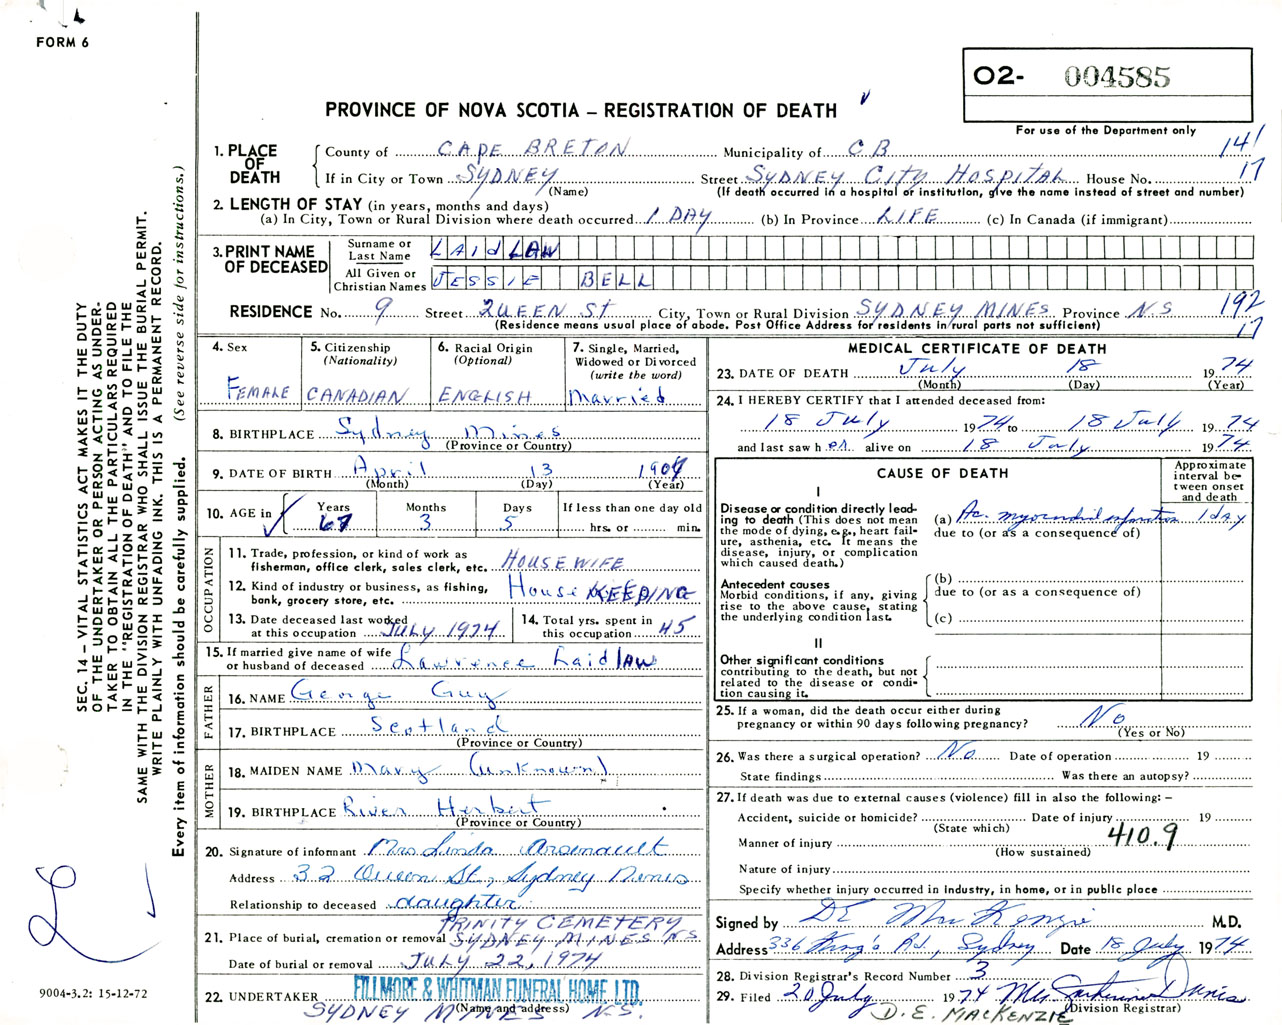 FORM 6
O2- 004585
PROVINCE OF NOVA SCOTIA – REGISTRATION OF DEATH
For use of the Department only
1. PLACE OF DEATH
County of CAPE BRETON Municipality of CB 141
If in City or Town SYDNEY Street SYDNEY CITY HOSPITAL House No. 17
(Name) (If death occurred in a hospital or institution, give the name instead of street and number)
2. LENGTH OF STAY (in years, months and days)
(a) In City, Town or Rural Division where death occurred 1 DAY (b) In Province LIFE (c) In Canada (if immigrant)
3. PRINT NAME OF DECEASED
Surname or Last Name LAIDLAW
All Given or Christian Names JESSIE BELL
RESIDENCE No. 9 Street QUEEN ST City, Town or Rural Division SYDNEY MINES Province N.S 192
(Residence means usual place of abode. Post Office Address for residents in rural parts not sufficient) 17
4. Sex
FEMALE
5. Citizenship
(Nationality)
CANADIAN
6. Racial Origin
(Optional)
ENGLISH
7. Single, Married,
Widowed or Divorced
(write the word)
Married
8. BIRTHPLACE Sydney Mines
(Province or Country)
9. DATE OF BIRTH April 13 1907
(Month) (Day) (Year)
10. AGE in
Years Months Days If less than one day old
67 3 5 hrs. or min.
OCCUPATION
11. Trade, profession, or kind of work as
fisherman, office clerk, sales clerk, etc. HOUSEWIFE
12. Kind of industry or business, as fishing,
bank, grocery store, etc. House KEEPING
13. Date deceased last worked
at this occupation JULY 1974
14. Total yrs. spent in
this occupation 45
15. If married give name of wife
or husband of deceased Lawrence Laidlaw
FATHER
16. NAME George Guy
17. BIRTHPLACE Scotland
(Province or Country)
MOTHER
18. MAIDEN NAME Mary (unknown)
19. BIRTHPLACE River Herbert
(Province or Country)
20. Signature of informant Mrs Linda Arsenault
Address 32 Queen St, Sydney Mines
Relationship to deceased daughter
TRINITY CEMETERY
21. Place of burial, cremation or removal SYDNEY MINES N.S.
Date of burial or removal JULY 22, 1974
22. UNDERTAKER FILLMORE & WHITMAN FUNERAL HOME LTD.
(Name and address)
SYDNEY MINES N.S.
MEDICAL CERTIFICATE OF DEATH
23. DATE OF DEATH July 18 1974
(Month) (Day) (Year)
24. I HEREBY CERTIFY that I attended deceased from:
18 July 1974 to 18 July 1974
and last saw her alive on 18 July 1974
CAUSE OF DEATH
Approximate
interval be-
tween onset
and death
I
Disease or condition directly lead-
ing to death (This does not mean
the mode of dying, e.g., heart fail-
ure, asthenia, etc. It means the
disease, injury, or complication
which caused death.)
(a) Ac. myocardial infarction 1 day
due to (or as a consequence of)
Antecedent causes
Morbid conditions, if any, giving
rise to the above cause, stating
the underlying condition last.
(b)
due to (or as a consequence of)
(c)
II
Other significant conditions
contributing to the death, but not
related to the disease or condi-
tion causing it.
25. If a woman, did the death occur either during
pregnancy or within 90 days following pregnancy? No
(Yes or No)
26. Was there a surgical operation? No Date of operation 19
State findings Was there an autopsy?
27. If death was due to external causes (violence) fill in also the following: –
Accident, suicide or homicide? Date of injury 19
(State which)
Manner of injury 410.9
(How sustained)
Nature of injury
Specify whether injury occurred in industry, in home, or in public place
Signed by DE MacKenzie M.D.
Address 336 King's Rd., Sydney Date 18 July 1974
28. Division Registrar's Record Number 3
29. Filed 20 July 1974 Mrs Davis
(Division Registrar)
D. E. MACKENZIE
SEC. 14 – VITAL STATISTICS ACT MAKES IT THE DUTY
OF THE UNDERTAKER OR PERSON ACTING AS UNDER-
TAKER TO OBTAIN ALL THE PARTICULARS REQUIRED
IN THE "REGISTRATION OF DEATH" AND TO FILE THE
SAME WITH THE DIVISION REGISTRAR WHO SHALL ISSUE THE BURIAL PERMIT.
WRITE PLAINLY WITH UNFADING INK. THIS IS A PERMANENT RECORD.
Every item of information should be carefully supplied. (See reverse side for instructions.)
L
9004-3.2: 15-12-72